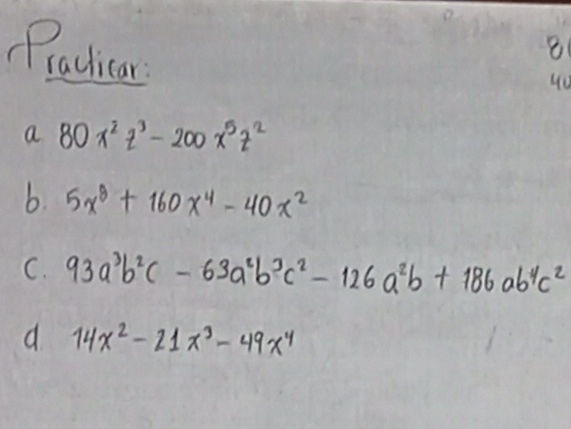 Practicar:
a 80x²z³ - 200x⁵z²
b. 5x⁸ + 160x⁴ - 40x²
c. 93a³b²c - 63a²b³c² - 126a²b + 186ab⁴c²
d. 14x² - 21x³ - 49x⁴